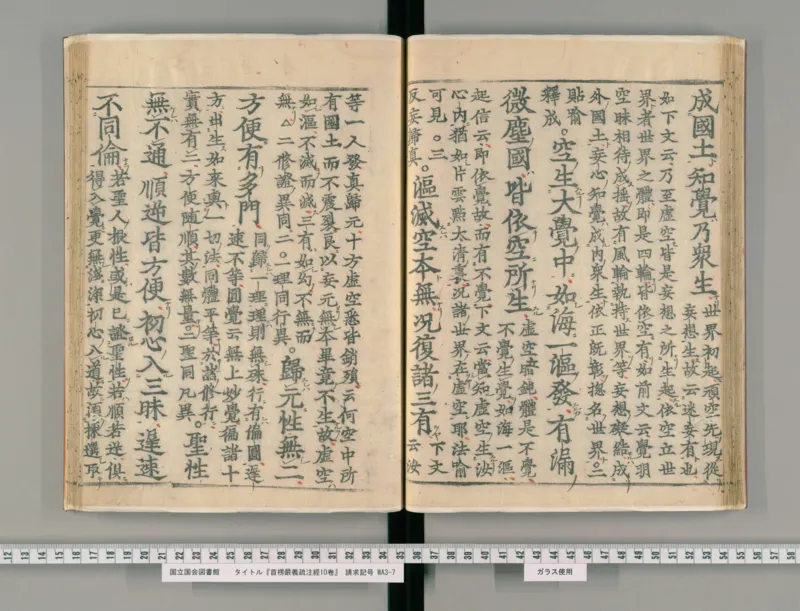 成國土知覺乃衆生 世界初起頑空先現從
妄想生故云迷妄有也
如下文云乃至虛空皆是妄想之所生起依空立世
界者世界之體即是四輪皆依空有如前文云覺明
空昧相待成搖故有風輪執持世界等妄想凝結成
外國土妄心知覺成内衆生依正旣彰揔名世界○二
貼喻
釋成○空生大覺中如海一漚發有漏
微塵國皆依空所生 虛空晦鈍體是不覺
不覺生覺如海一漚
起信云即依覺故而有不覺下文云當知虛空生汝
心内猶如片雲點太清裏況諸世界在虛空耶法喻
可見○三
反妄歸真○漚滅空本無況復諸三有 下文
云汝
等一人發真歸元十方虛空悉皆銷殞云何空中所
有國土而不震裂良以妄元無本畢竟不生故虛空
如漚不滅而滅三有如幻不無而
無△二修證異同二○一理同行異○歸元性無二
方便有多門 同歸一理理則無殊行有偏圓遲
速不等圓覺云無上妙覺徧諸十
方出生如來與一切法同體平等於諸修行
實無有二方便隨順其數無量○二聖同凡異○聖性
無不通順逆皆方便初心入三昧遲速
不同倫 若聖人根性或是已證聖性若順若逆俱
得入覺更無淺深初心入道故須揀選取
12 13 14 15 16 17 18 19 20 21 22 23 24 25 26 27 28 29 30 31 32 33 34 35 36 37 38 39 40 41 42 43 44 45 46 47 48 49 50 51 52 53 54 55 56 57 58 59 60
国立国会図書館 タイトル『首楞嚴義疏注經10巻』 請求記号 WA3-7
ガラス使用